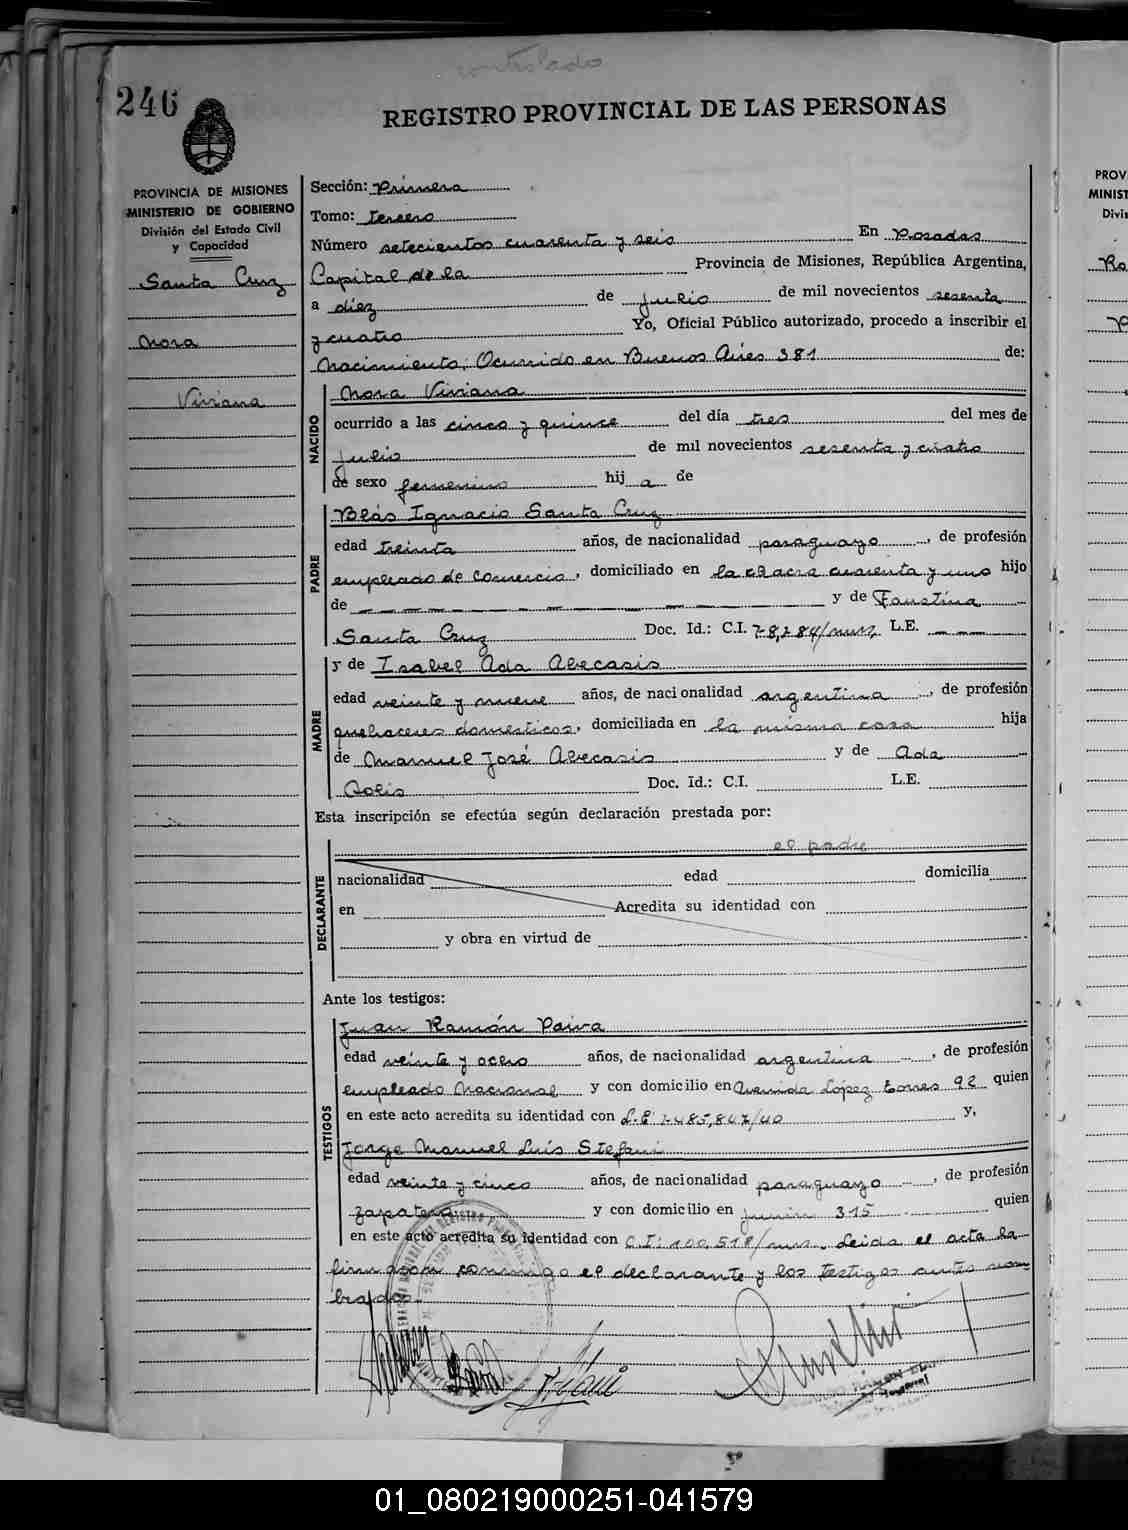 controlado
246
REGISTRO PROVINCIAL DE LAS PERSONAS
PROVINCIA DE MISIONES
MINISTERIO DE GOBIERNO
División del Estado Civil
y Capacidad
Santa Cruz
Nora
Viviana
Sección: Primera
Tomo: tercero
Número setecientos cuarenta y seis En Posadas
Capital de la Provincia de Misiones, República Argentina,
a diez de julio de mil novecientos sesenta
y cuatro Yo, Oficial Público autorizado, procedo a inscribir el
Nacimiento: Ocurrido en Buenos Aires 381 de:
NACIDO
Nora Viviana
ocurrido a las cinco y quince del día tres del mes de
julio de mil novecientos sesenta y cuatro
de sexo femenino hij a de
PADRE
Blás Ignacio Santa Cruz
edad treinta años, de nacionalidad paraguayo, de profesión
empleado de comercio, domiciliado en la chacra cuarenta y uno hijo
de — — — — — — — — y de Faustina
Santa Cruz Doc. Id.: C.I. 78,284/mnes L.E. — — —
MADRE
y de Isabel Ada Abecasis
edad veinte y nueve años, de nacionalidad argentina, de profesión
quehaceres domesticos, domiciliada en la misma casa hija
de Manuel José Abecasis y de Ada
Solis Doc. Id.: C.I. L.E.
Esta inscripción se efectúa según declaración prestada por:
el padre
DECLARANTE
nacionalidad edad domicilia
en Acredita su identidad con
y obra en virtud de
Ante los testigos:
TESTIGOS
Juan Ramón Paiva
edad veinte y ocero años, de nacionalidad argentina, de profesión
empleado Nacional y con domicilio en Avenida López torres 92 quien
en este acto acredita su identidad con L.E: 7.485,847/40 y,
Jorge Manuel Luis Stefani
edad veinte y cinco años, de nacionalidad paraguayo, de profesión
zapatero y con domicilio en junin 315 quien
en este acto acredita su identidad con C.I: 100,518/mnes. Leida el acta la
firmaron conmigo el declarante y los testigos antes nom-
brados.
PROV
MINIST
Divis
01_080219000251-041579